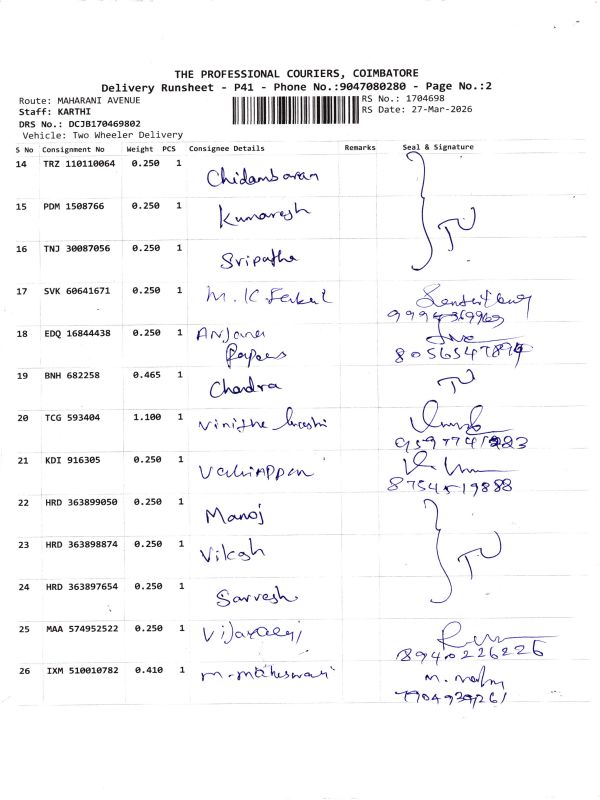 THE PROFESSIONAL COURIERS, COIMBATORE
Delivery Runsheet - P41 - Phone No.:9047080280 - Page No.:2
Route: MAHARANI AVENUE
RS No.: 1704698
Staff: KARTHI
RS Date: 27-Mar-2026
DRS No.: DCJB170469802
Vehicle: Two Wheeler Delivery
S No Consignment No Weight PCS Consignee Details Remarks Seal & Signature
14 TRZ 110110064 0.250 1 Chidambaram
15 PDM 1508766 0.250 1 Kumaresh
16 TNJ 30087056 0.250 1 Sripatha
17 SVK 60641671 0.250 1 M.K
18 EDQ 16844438 0.250 1 Anjana
Papers
19 BNH 682258 0.465 1 Chandra
20 TCG 593404 1.100 1
21 KDI 916305 0.250 1 Valliappan
8754519888
22 HRD 363899050 0.250 1 Manoj
23 HRD 363898874 0.250 1 Vikash
24 HRD 363897654 0.250 1 Sarvesh
25 MAA 574952522 0.250 1
8940226226
26 IXM 510010782 0.410 1 M. Maheswari